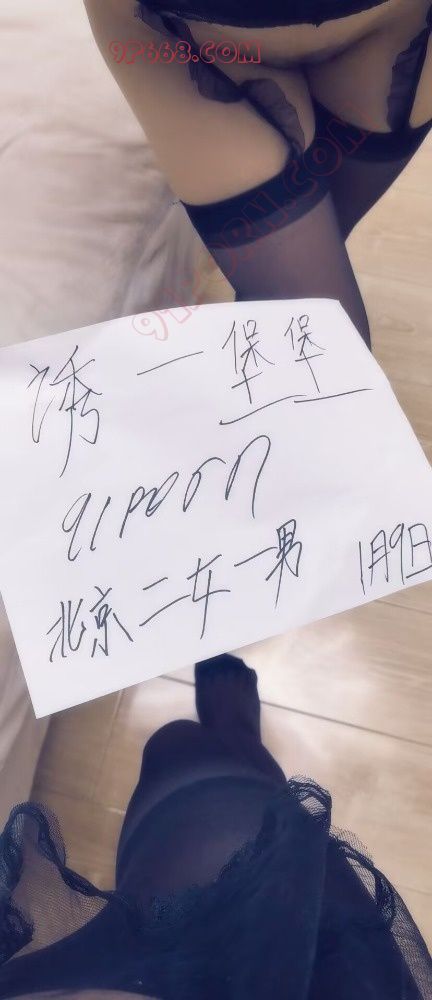 9P668.COM
91PORN.COM
诱一堡堡
91porn
北京二女一男 1月9日